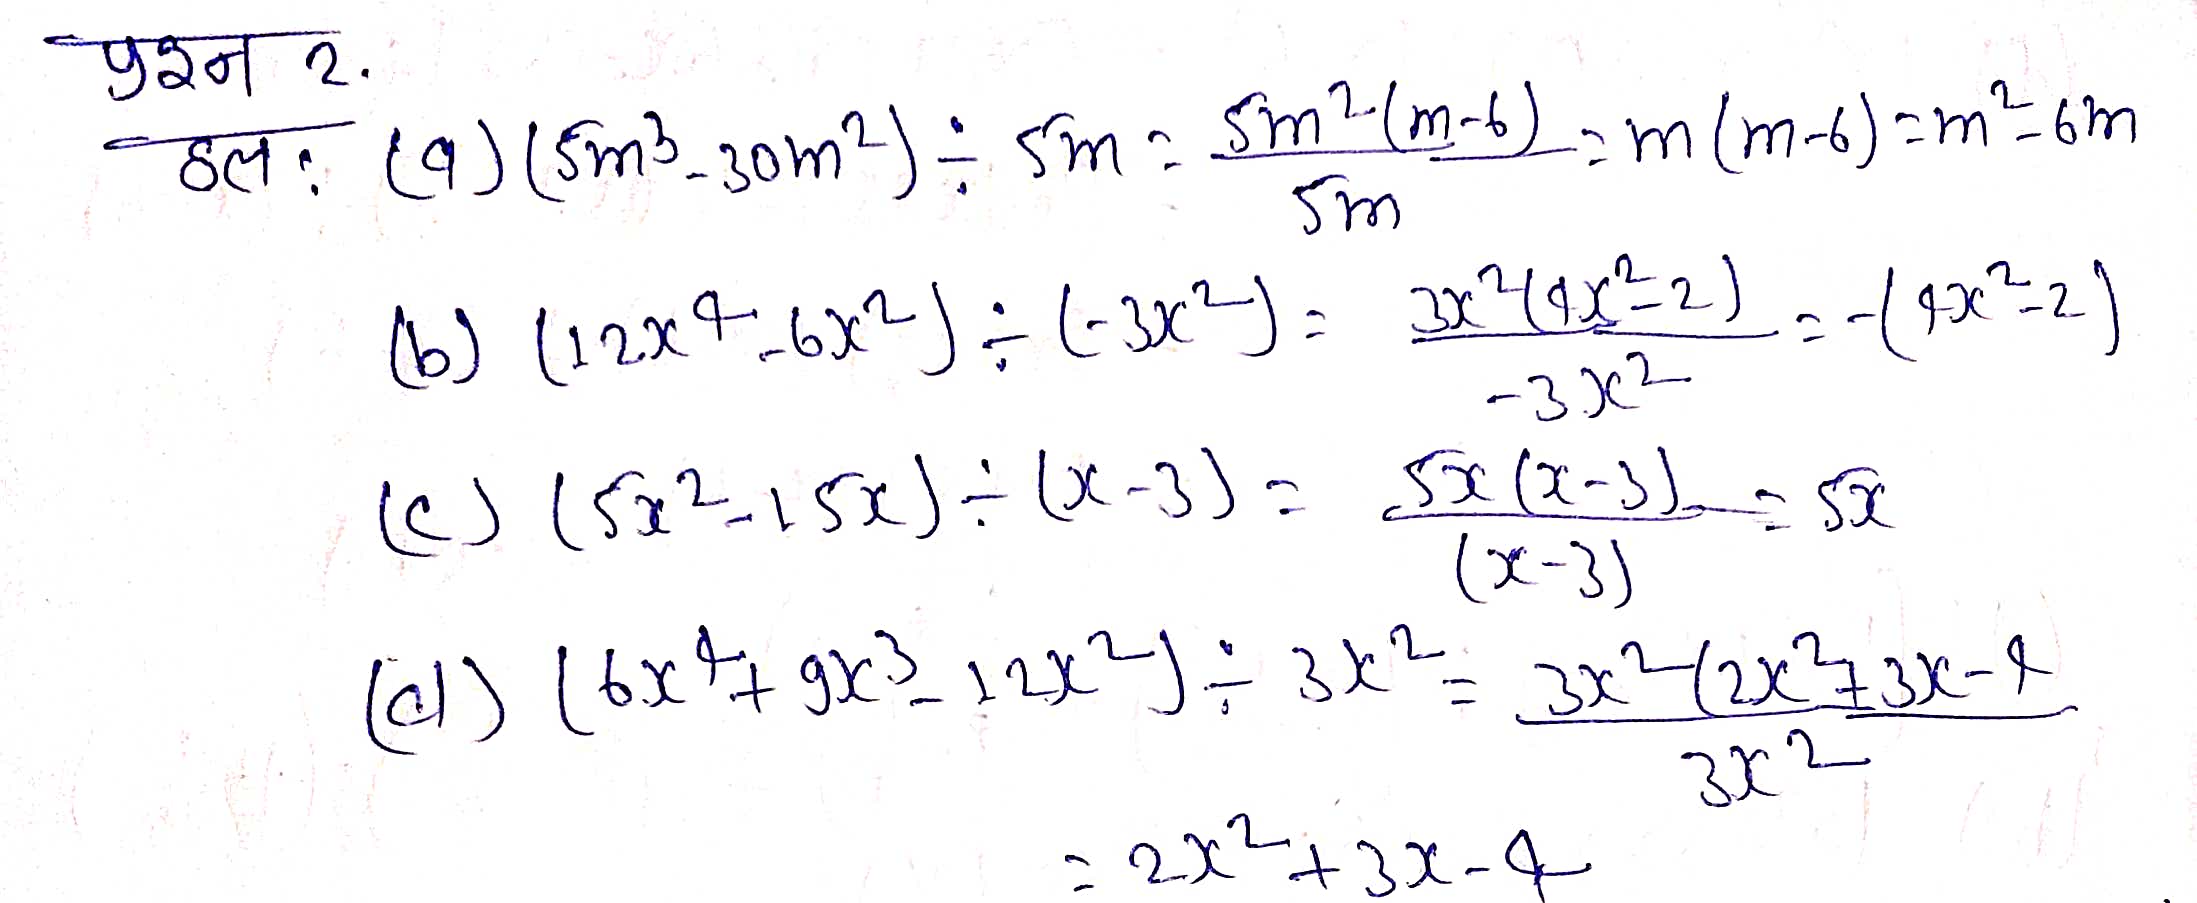 प्रश्न 2.
हल: (a) (5m³-30m²) ÷ 5m = 5m²(m-6)/5m = m(m-6) = m²-6m
(b) (12x⁴-6x²) ÷ (-3x²) = 3x²(4x²-2)/-3x² = -(4x²-2)
(c) (5x²-15x) ÷ (x-3) = 5x(x-3)/(x-3) = 5x
(d) (6x⁴+9x³-12x²) ÷ 3x² = 3x²(2x²+3x-4/3x²
= 2x²+3x-4